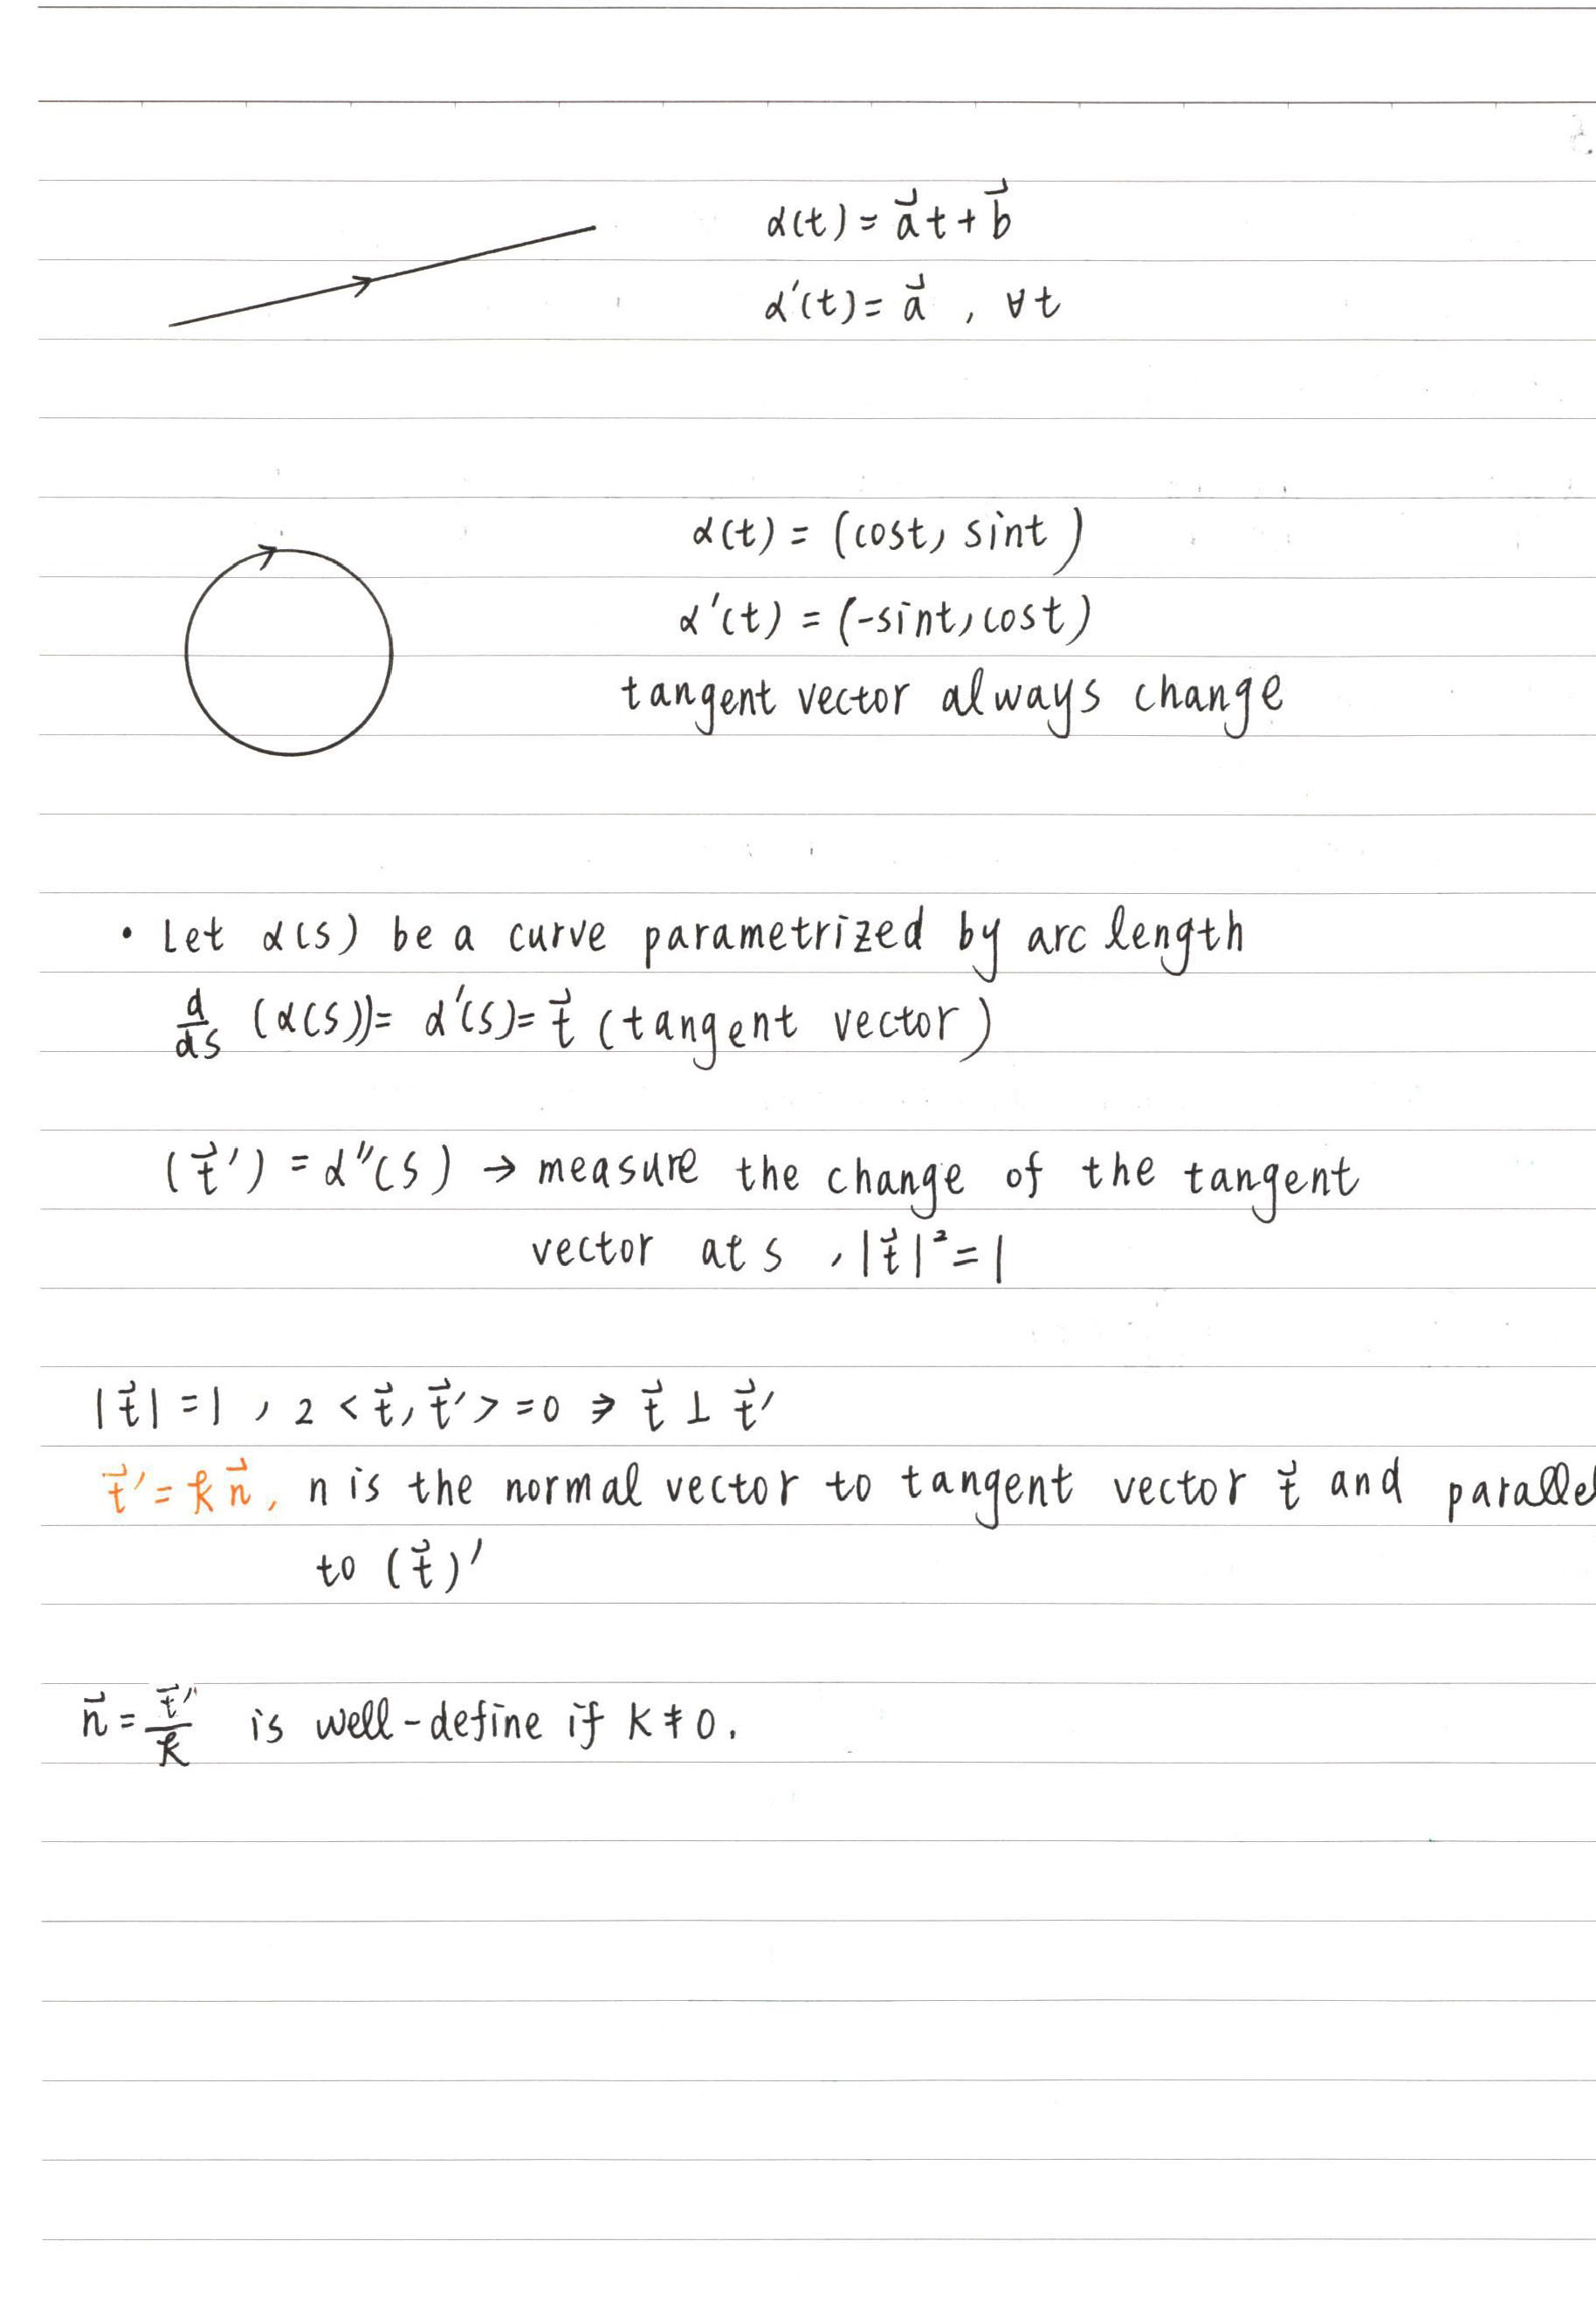 α(t) = a⃗t + b⃗
α'(t) = a⃗ , ∀t
α(t) = (cost, sint)
α'(t) = (-sint, cost)
tangent vector always change
• Let α(s) be a curve parametrized by arc length
d/ds (α(s)) = α'(s) = t⃗ (tangent vector)
(t⃗') = α''(s) → measure the change of the tangent
vector at s , |t⃗|² = 1
|t⃗| = 1 , 2 <t⃗, t⃗'> = 0 ⇒ t⃗ ⊥ t⃗'
t⃗' = k n⃗, n is the normal vector to tangent vector t⃗ and parallel
to (t⃗)'
n⃗ = t⃗'/k is well-define if k ≠ 0.